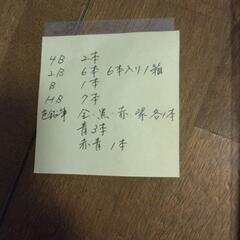 4B 2本
2B 6本 6本入り1箱
B 1本
HB 9本
色鉛筆 金・黒・赤・ 各1本
青3本
赤青 1本